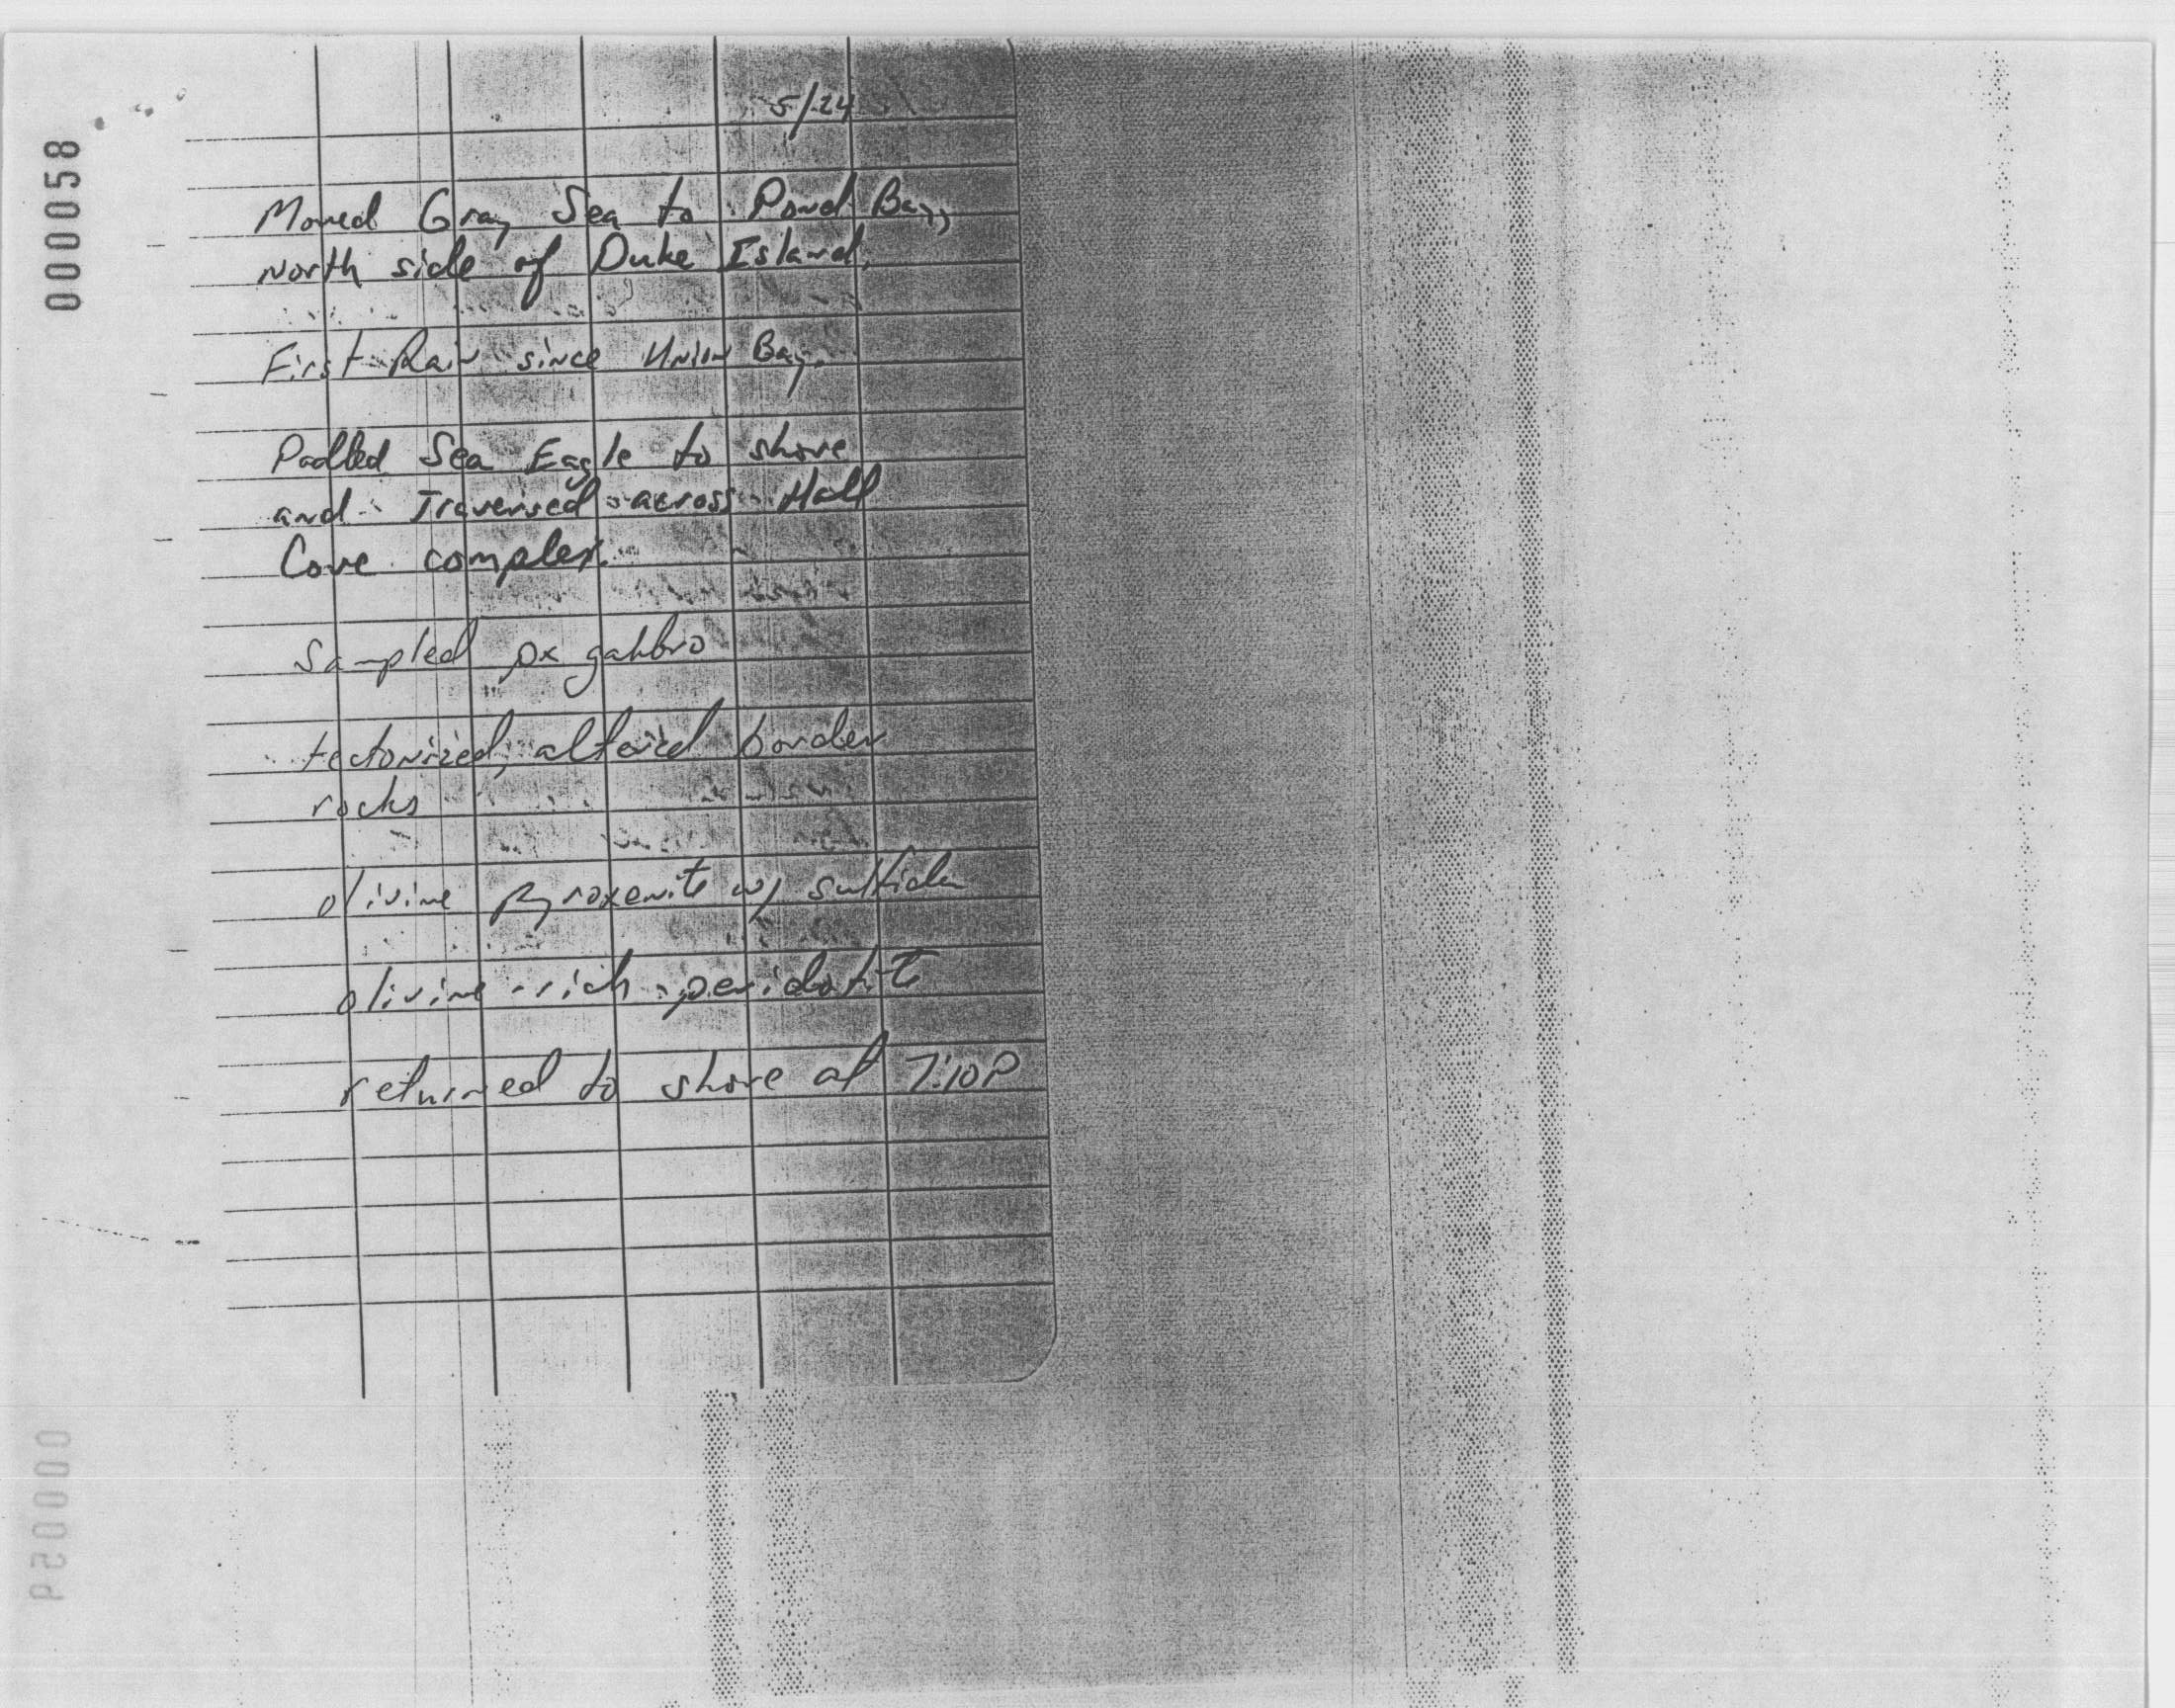 000058
5/24
Moved Gray Sea to Pond Bay,
North side of Duke Island.
First Rain since Union Bay.
Padled Sea Eagle to shore
and Traversed across Hall
Cove complex.
Sampled px gabbro
tectonized, altered border
rocks
olivine pyroxenite w/ sulfides
olivine-rich peridotite
returned to shore at 7:10P
000059